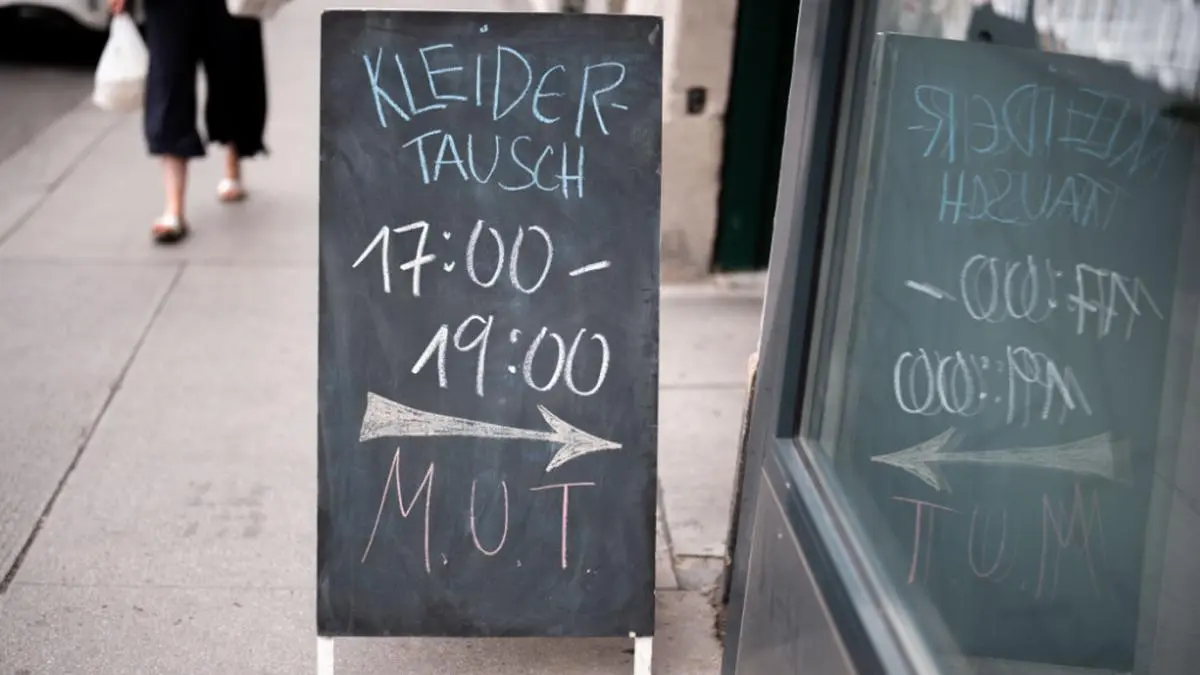 KLEIDER-
TAUSCH
17:00 -
19:00
M.U.T.